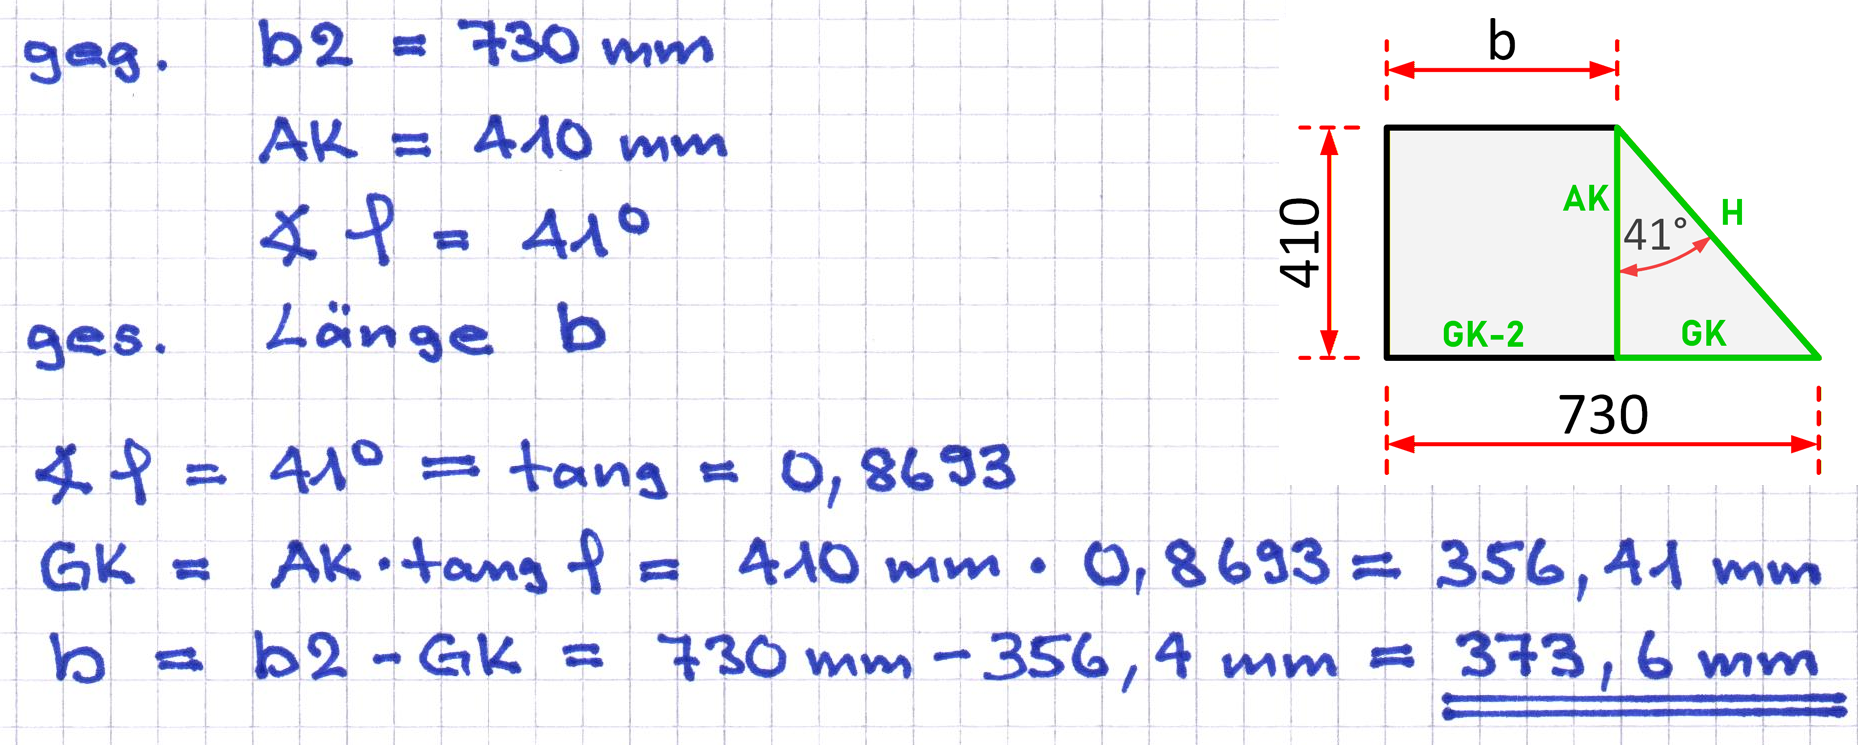 geg. b2 = 730 mm
AK = 410 mm
∡ φ = 41°
ges. Länge b
∡ φ = 41° = tang = 0,8693
GK = AK · tang φ = 410 mm · 0,8693 = 356,41 mm
b = b2 - GK = 730 mm - 356,4 mm = 373,6 mm
b
410
AK
41°
H
GK-2
GK
730